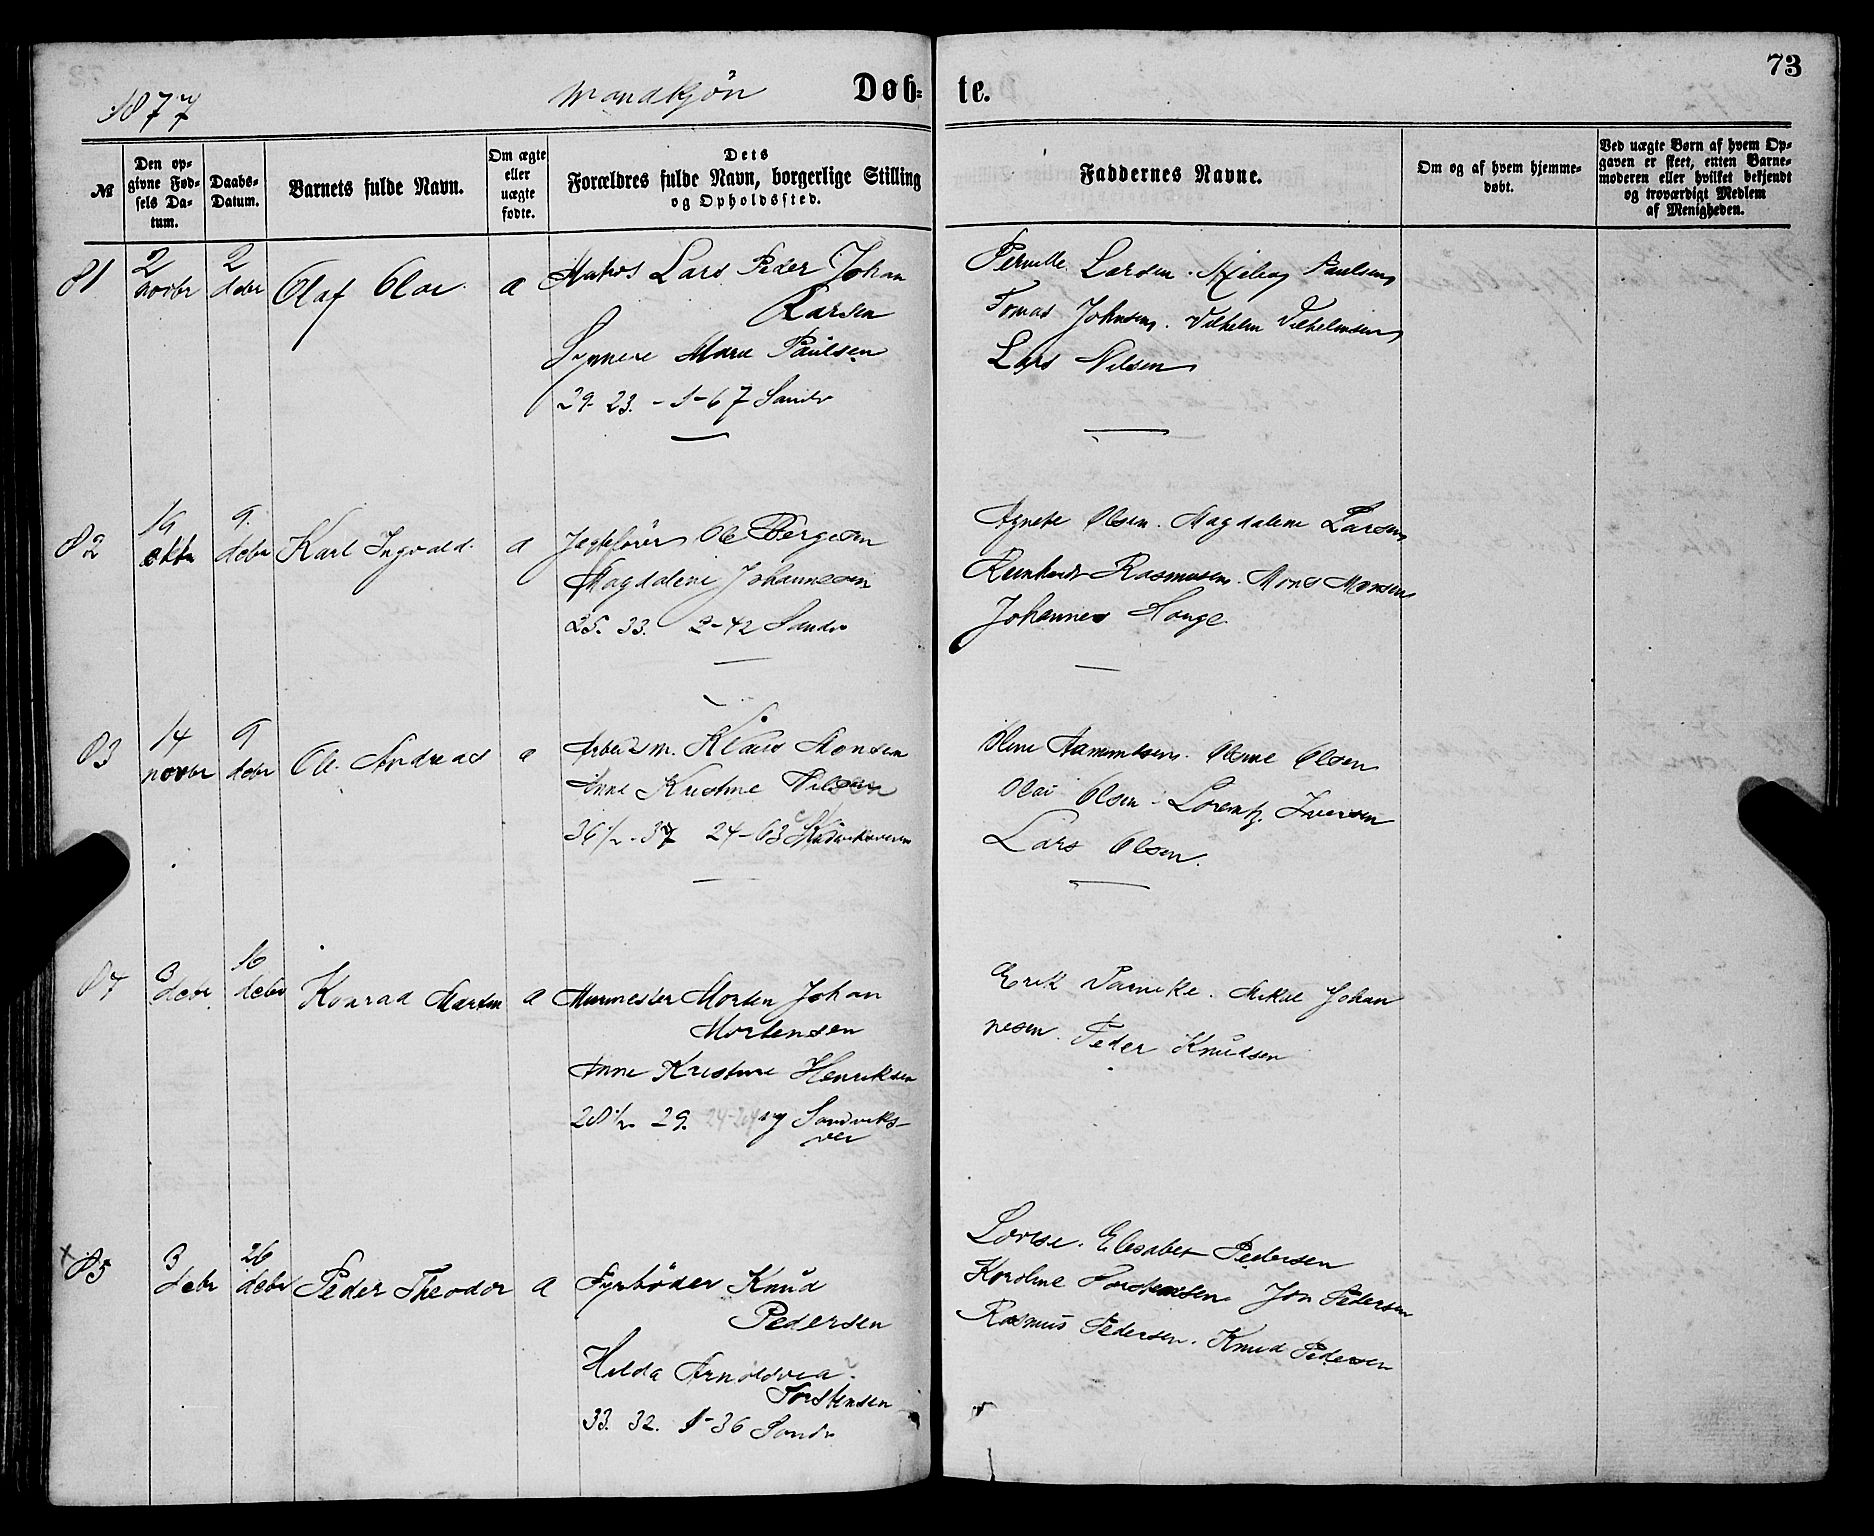 73
1877 Mandkjön Døb- te.
№
Den op-
givne Fød-
sels Da-
tum.
Daabs-
Datum.
Barnets fulde Navn.
Om ægte
eller
uægte
fødte.
Dets
Forældres fulde Navn, borgerlige Stilling
og Opholdssted.
Faddernes Navne.
Om og af hvem hjemme-
døbt.
Ved uægte Børn af hvem Op-
gaven er skeet, enten Barne-
moderen eller hvilket bekjendt
og troværdigt Medlem
af Menigheden.
81
2
novbr
2
debr
Olaf Olai
a
Lars Peder Johan
Larsen
Marie Paulsen
29. 23. - 1-67 Sandv
Pernille Larsen. Paulsen
Tomas Johnsen. Vilhelm Vilhelmsen
Lars Nilsen
82
oktbr
9.
debr
Karl Ingvald.
a
Jegtefører Ole Bergesen
Magdalene Johannesen
25. 33. 2-42 Sandv
Agnete Olsen. Magdalene Larsen
Reinhardt Rasmusen. Mons Monsen
Johannes Hauge.
83
14
novbr
9
debr
Ole Andreas
a
Arbeidsm. Klaus Monsen
Anne Kristine Nilsen
36½. 37 24-63
Oline Olsen
Olai Olsen. Lorentz Iversen
Lars Olsen.
84
3
debr
16
debr
Konrad Martin
a
Murmester Morten Johan
Mortensen
Anne Kristine Henriksen
28½. 29. Sandviks-
vei
Erik Mikal Johan
nesen. Peder Knudsen
x
85
3
debr
26
debr
Peder Theodor
a
Fyrbøder Knud
Pedersen
Hilda
Torstensen
33. 32. 1-36 Sandv
Lovise. Elisabet Pedersen
Karoline Torstensen Jon Pedersen
Rasmus Pedersen. Knud Pedersen